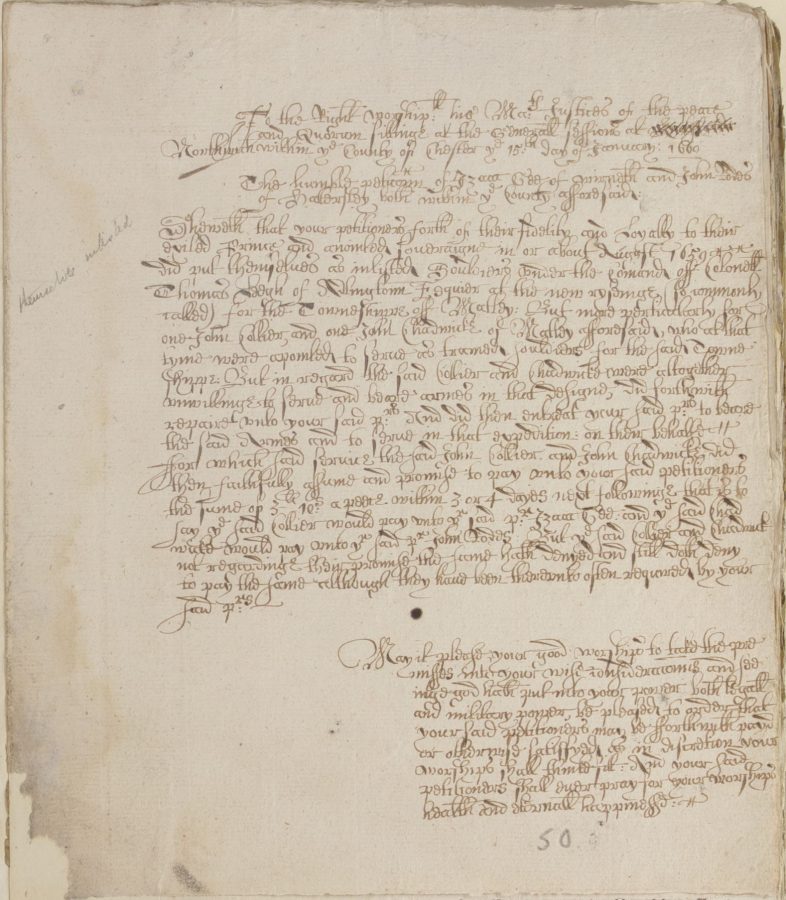 To the Right worship:ll his Ma:ties Justices of the peace
and Quorum sittinge at the Generall sessions at
Northwich within ye County of Chester ye 15th day of January: 1660
The humble peticion of Izacc Gee of and John Dodes
of Hattersley both within ye County afforesaid:
Sheweth that your petitioners forth of their fidelity and Loyalty to their
exiled Prince and anointed soveraigne in or about August 1659
did put themselves as inlisted Souldiers under the Comand off Colonell
Thomas Leigh of Adlingtonn Esquier at the new rysinge (so commonly
called) for the Towneshippe off Matley: But more perticularly for
one John Collier, and one John Chadwicke of Matley afforesaid, who at that
tyme were apointed to serve as trained souldiers for the said Towne-
shippe: But in regard the said Collier and Chadwicke were altogether
unwillinge to serve and beare armes in that designe, did forthwith
repaire unto your said prs And did then entreat your said prs to beare
the said Armes and to serve in that expedition: on their behalfe
ffor which said service the said John Collier and John Chadwicke, did
then faithfully assume and promise to pay unto your said petitioners
the sume of 3li 10s a peece within 3 or 4 dayes next followinge that is to
say ye said Collier would pay unto yr said pr Izacc Gee and ye said Chad
wicke would pay unto yr said pr John Dodes: But ye said Collier and Chadwick
not regardinge their promise the same hath denyed and still doth deny
to pay the same although they have been thereunto often required by your
said prs
May it please your good worships to take the pre
misses into your wise consideracions and see
inge god hath put into your power both legall
and military power, be pleased to order that
your said petitioners may be fforthwith payd
or otherwise satisfyed as in discretion your
worships shall thinke fit: And your said
petitioners shall ever pray for your worships
health and eternall happines
themselves inlisted
50